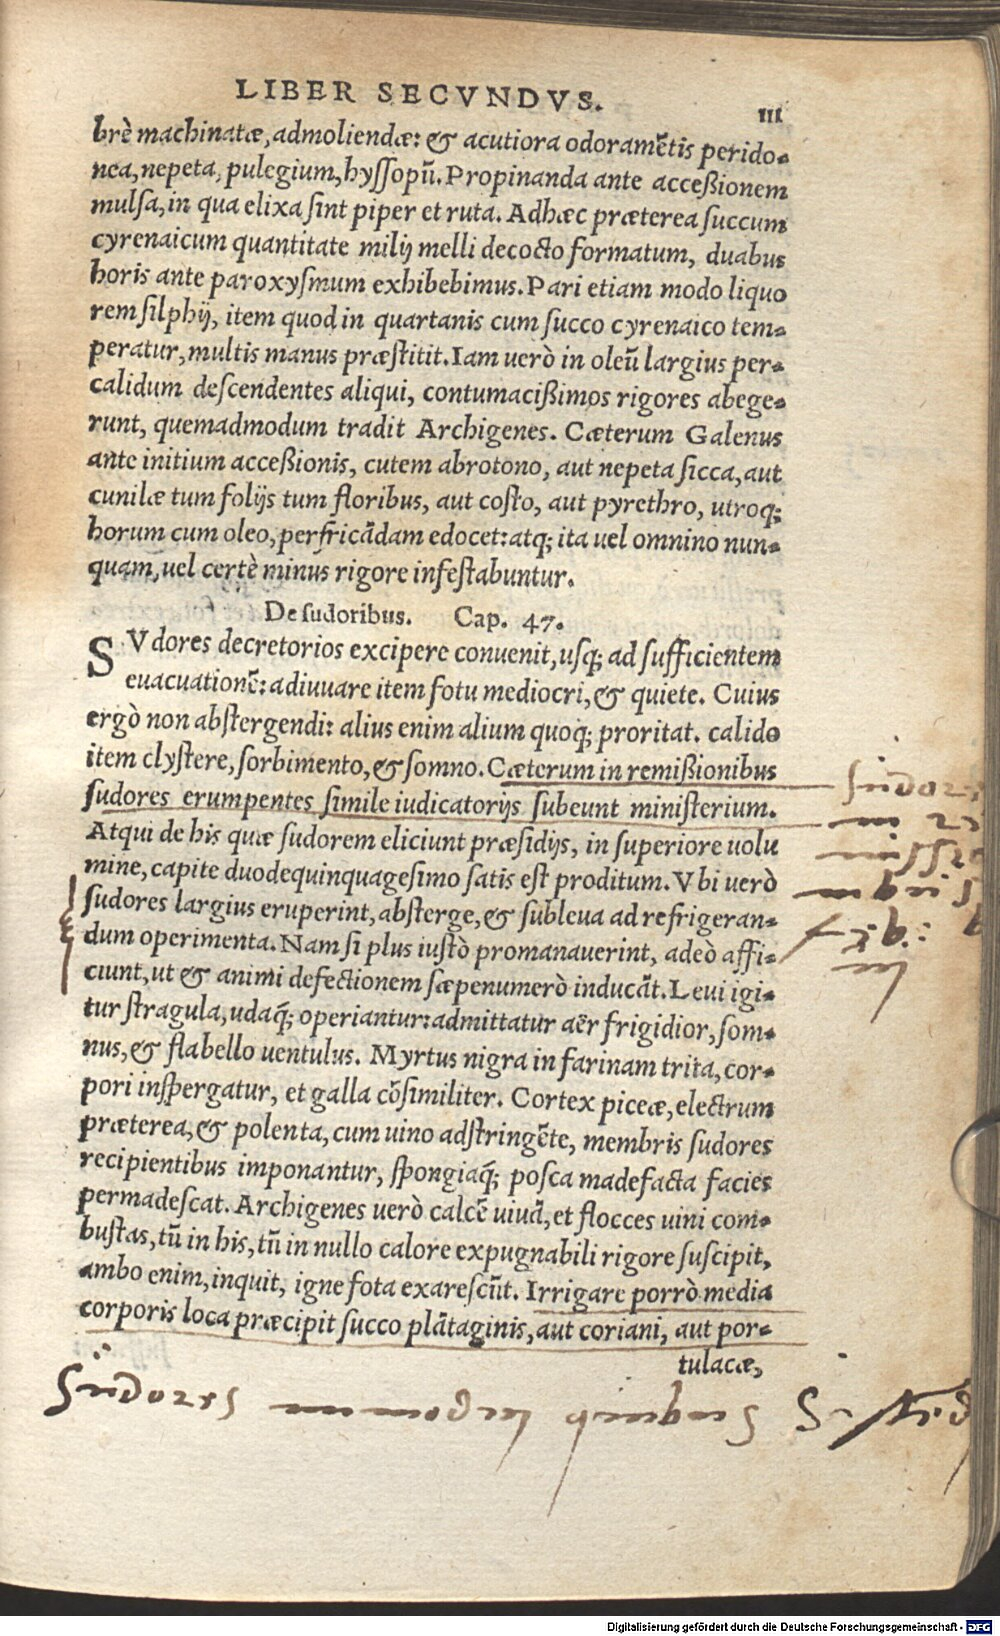 LIBER SECVNDVS.
III
brè machinatæ, admoliendæ: & acutiora odoramētis perido-
nea, nepeta, pulegium, hyſſopū. Propinanda ante acceßionem
mulſa, in qua elixa ſint piper et ruta. Adhæc præterea ſuccum
cyrenaicum quantitate milij melli decocto formatum, duabus
horis ante paroxyſmum exhibebimus. Pari etiam modo liquo
rem ſilphij, item quod in quartanis cum ſucco cyrenaico tem-
peratur, multis manus præſtitit. Iam uerò in oleū largius per-
calidum deſcendentes aliqui, contumacißimos rigores abege-
runt, quemadmodum tradit Archigenes. Cæterum Galenus
ante initium acceßionis, cutem abrotono, aut nepeta ſicca, aut
cunilæ tum folijs tum floribus, aut coſto, aut pyrethro, utroq;
horum cum oleo, perfricādam edocet: atq; ita uel omnino nun-
quam, uel certè minus rigore infeſtabuntur.
De ſudoribus. Cap. 47.
SVdores decretorios excipere conuenit, uſq; ad ſufficientem
euacuationē: adiuuare item fotu mediocri, & quiete. Cuius
ergò non abſtergendi: alius enim alium quoq; proritat. calido
item clyſtere, ſorbimento, & ſomno. Cæterum in remißionibus
ſudores erumpentes ſimile iudicatorijs ſubeunt miniſterium.
Atqui de his quæ ſudorem eliciunt præſidijs, in ſuperiore uolu
mine, capite duodequinquageſimo ſatis eſt proditum. Vbi uerò
ſudores largius eruperint, abſterge, & ſubleua ad refrigeran-
dum operimenta. Nam ſi plus iuſtò promanauerint, adeò affi-
ciunt, ut & animi defectionem ſæpenumerò inducāt. Leui igi-
tur ſtragula, udaq́; operiantur: admittatur aër frigidior, ſom-
nus, & flabello uentulus. Myrtus nigra in farinam trita, cor-
pori inſpergatur, et galla cōſimiliter. Cortex piceæ, electrum
præterea, & polenta, cum uino adſtringēte, membris ſudores
recipientibus imponantur, ſpongiaq́; poſca madefacta facies
permadeſcat. Archigenes uerò calcē uiuā, et flocces uini com-
buſtas, tū in his, tū in nullo calore expugnabili rigore ſuſcipit,
ambo enim, inquit, igne fota exareſcūt. Irrigare porrò media
corporis loca præcipit ſucco plātaginis, aut coriani, aut por-
tulacæ,